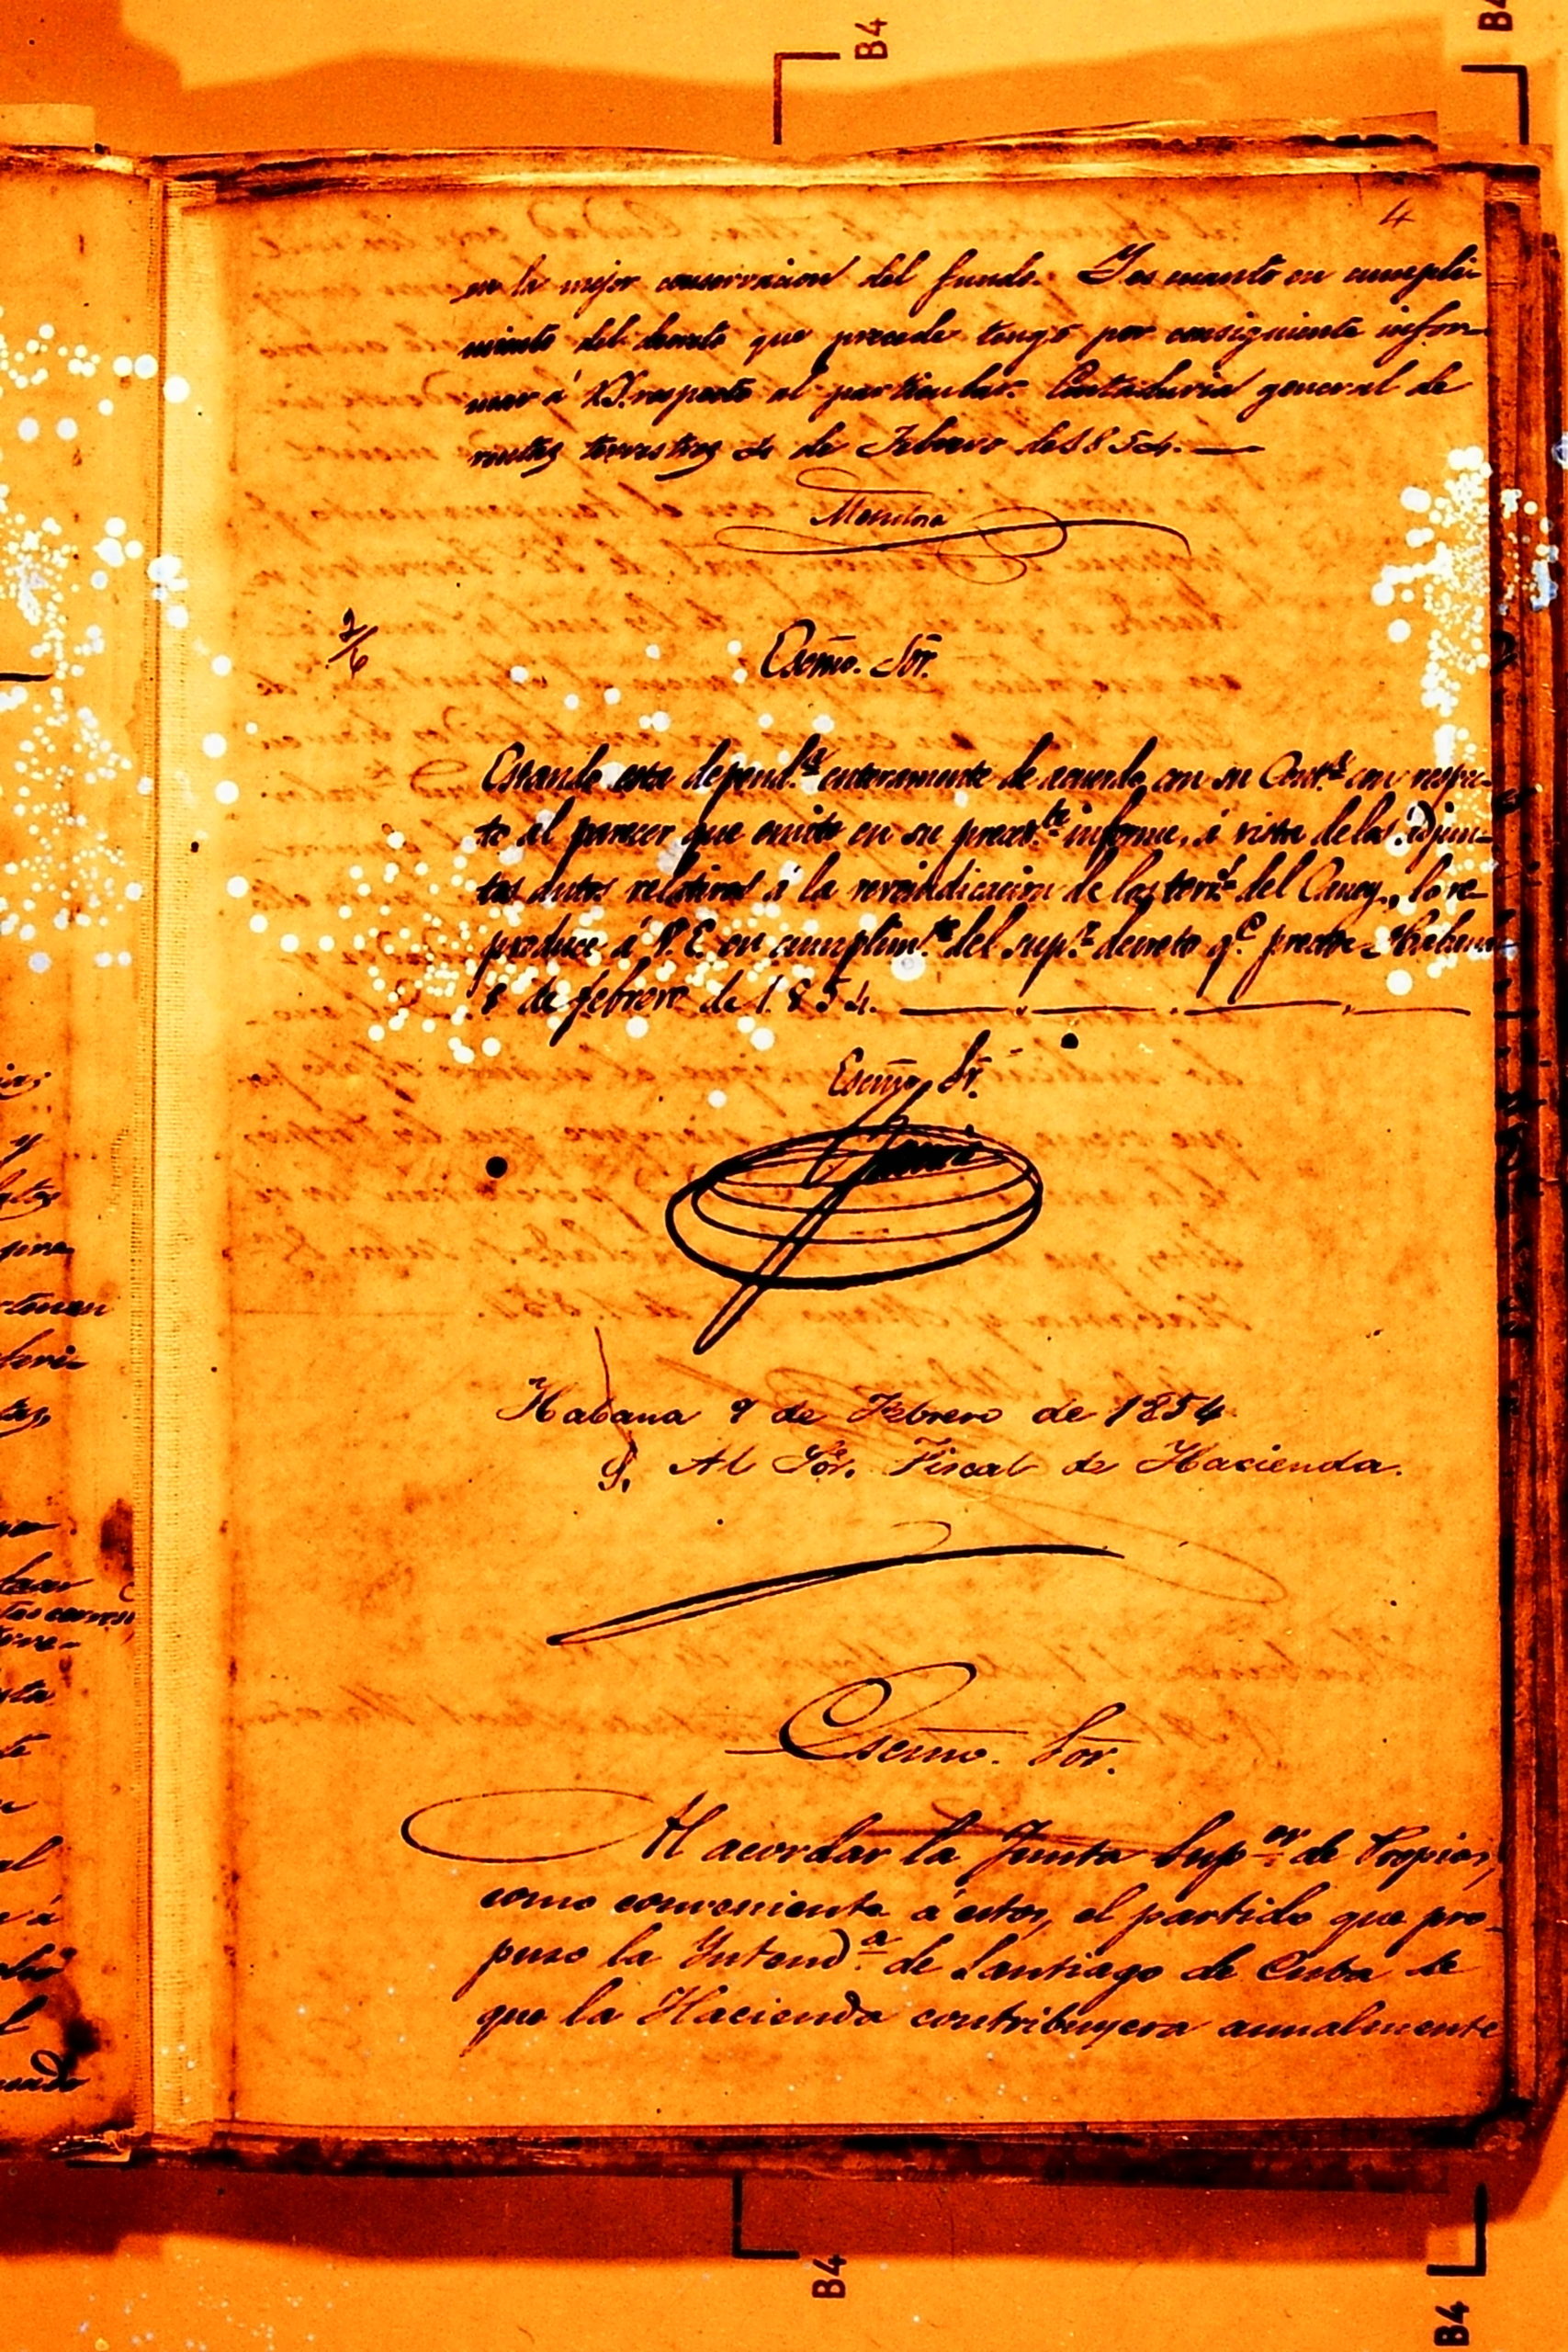 B4
B4
4
en la mejor conservacion del fundo. Y es cuanto en cumpli-
miento del decreto que precede tengo por consiguiente infor-
mar á VS. respecto al particular. Contaduria general de
rentas terrestres 4 de Febrero de 1854.
Mendoza
2/6
Escmo. Sor.
Estando esta depend.ª enteramente de acuerdo con su Cont.ª con respec-
to al parecer que emite en su preced.te informe, á vista de los adjun-
tos autos relativos á la reivindicacion de los terr.s del Caney, lo re-
produce á V.E. en cumplim.to del sup.r decreto q.e precede. Habana
8 de febrero de 1854.
Escmo. Sr.
Habana 9 de Febrero de 1854
P. Al Sor. Fiscal de Hacienda.
Escmo. Sor.
Al acordar la Junta Sup.or de Propios,
como conveniente á estos, el partido que pro-
puso la Intend.ª de Santiago de Cuba de
que la Hacienda contribuyera anualmente
B4
B4